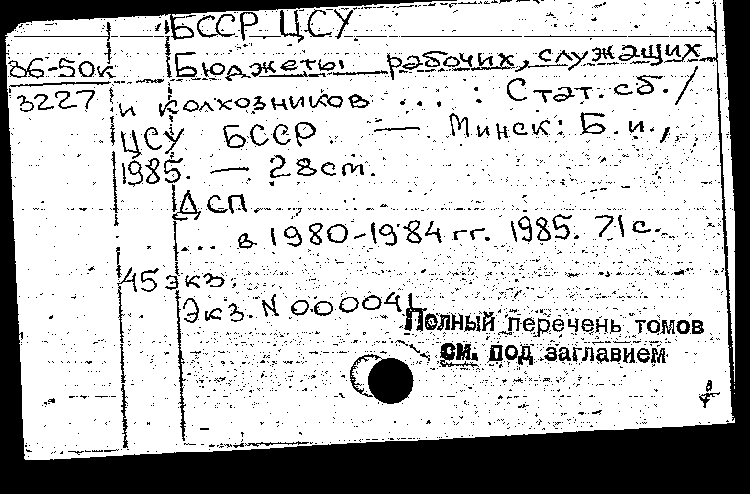 БССР ЦСУ
86-50к Бюджеты рабочих, служащих
3227 и колхозников ... : Стат. сб. /
ЦСУ БССР. — Минск: Б. и.,
1985. — 28 см.
ДСП.
... в 1980-1984 гг. 1985. 71 с.
45 экз.
Экз. N 000041
Полный перечень томов
см. под заглавием